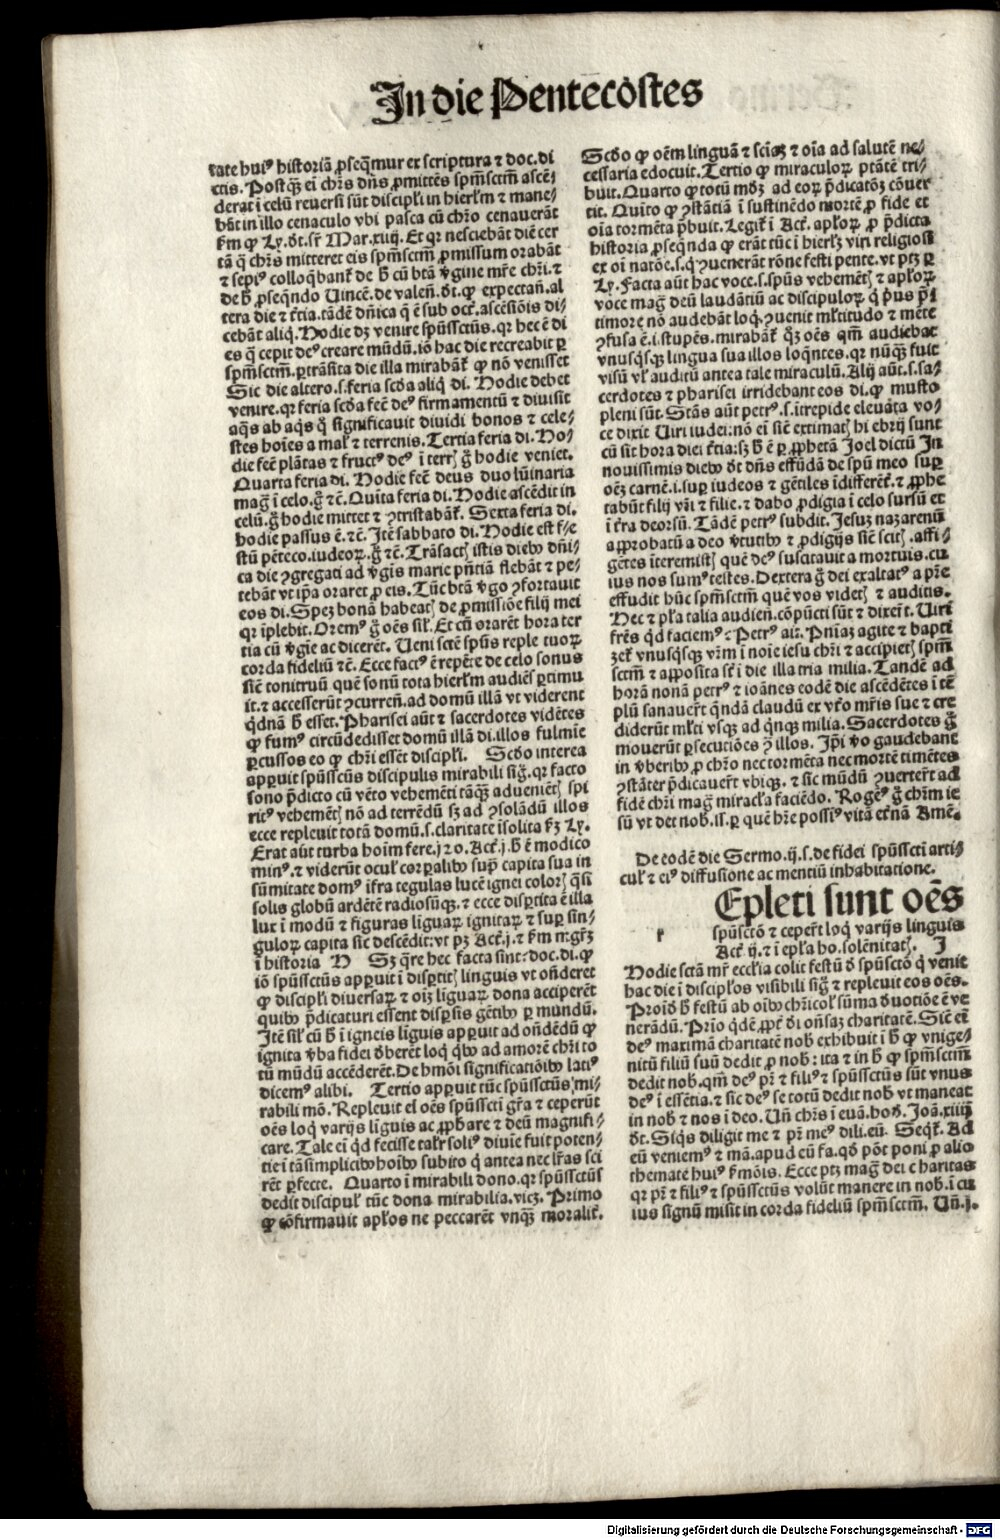 In die Pentecostes
tate huiꝰ historiã ꝓseq̃mur ex scriptura ⁊ doc. di
ctis. Postq̃ꝫ eĩ chr̃s dñs ꝓmittẽs spm̃sctm̃ ascẽ⸗
derat ĩ celũ reuersi sũt discipl̃i in hierl̃m ⁊ mane⸗
bãt in illo cenaculo vbi pasca cũ chr̃o cenauerãt
km̃ ꝙ Ly. d̃t. sr̃ Mar. xiiij. Et qꝛ nesciebãt diẽ cer
tã q̃ chr̃s mitteret eis spm̃sctm̃ ꝓmissum orabãt
⁊ sepiꝰ colloq̃bant̃ de h̃ cũ btã ṽgine mr̃e chr̃i. ⁊
de h̃ ꝓseq̃ndo Uincẽ. de valeñ. d̃t. ꝙ expectañ. al
tera die ⁊ t̃tia. tãdẽ dñica q̃ ẽ sub oct̃. ascẽsiõis di⸗
cebãt aliq̃. Hodie dꝫ venire spũssctũs. qꝛ hec ẽ di
es q̃ cepit deꝰ creare mũdũ. iõ hac die recreabit ꝑ
spm̃sctm̃. ꝑtrãsita die illa mirabãt̃ ꝙ nõ venisset
Sic die altero. s. feria scd̃a aliq̃ di. Hodie debet
venire. qꝛ feria scd̃a fec̃ deꝰ firmamentũ ⁊ diuisit
aq̃s ab aq̃s q̃ significauit diuidi bonos ⁊ cele⸗
stes hoĩes a mal̃ ⁊ terrenis. Tertia feria di. Ho⸗
die fec̃ plãtas ⁊ fructꝰ deꝰ ĩ terr̃ g̃ hodie veniet.
Quarta feria di. Hodie fec̃ deus duo lũinaria
mag̃ ĩ celo. g̃ ⁊c̃. Quĩta feria di. Hodie ascẽdit in
celũ. g̃ hodie mittet ⁊ ꝯtristabãt̃. Sexta feria di.
hodie passus ẽ. ⁊c̃. Itẽ sabbato di. Hodie est fe⸗
stũ pẽteco. iudeoꝝ. g̃ ⁊c̃. Trãsact̃ istis dieb̃ dñi⸗
ca die ꝯgregati ad ṽgis marie pñtiã flebãt ⁊ pe⸗
tebãt vt ip̃a oraret ꝓ eis. Tũc btã ṽgo ꝯfortauit
eos di. Spez bonã habeat̃ de ꝓmissiõe filij mei
qꝛ ĩplebit. Oremꝰ g̃ oẽs sil̃. Et cũ orarẽt hora ter
tia cũ ṽgĩe ac dicerẽt. Ueni sctẽ spũs reple tuoꝝ
corda fideliũ ⁊c̃. Ecce factꝰ ẽ repẽte de celo sonus
sic̃ tonitruũ quẽ sonũ tota hierl̃m audiẽs ꝑtimu
it. ⁊ accesserũt ꝯcurreñ. ad domũ illã vt viderent
q̃dnã h̃ esset. Pharisei aũt ⁊ sacerdotes vidẽtes
ꝙ fumꝰ circũdedisset domũ illã di. illos fulmĩe
ꝑcussos eo ꝙ chr̃i essẽt discipl̃i. Scd̃o interea
apꝑuit spũsctũs discipulis mirabili sig̃. qꝛ facto
sono p̃dicto cũ vẽto vehemẽti tãq̃ꝫ adueniẽt̃ spi
ritꝰ vehemẽt̃ nõ ad terrẽdũ sꝫ ad ꝯsolãdũ illos
ecce repleuit totã domũ. s. claritate ĩsolita km̃ Ly.
Erat aũt turba hoĩm fere. j2o. Act̃. j. h̃ ẽ modico
minꝰ. ⁊ viderũt ocul̃ corꝑalib̃ sup̃ capita sua in
sũmitate domꝰ ĩfra tegulas lucẽ ignei color̃ q̃si
solis globũ ardẽtẽ radiosũqꝫ. ⁊ ecce disꝑtita ẽ illa
lux ĩ modũ ⁊ figuras lĩguaꝝ ignitaꝝ ⁊ suꝑ sin⸗
guloꝝ capita sic descẽdit: vt pꝫ Act̃. j. ⁊
ĩ historia H Sꝫ q̃re hec facta sint: doc. di. ꝙ
iõ spũssctũs apꝑuit ĩ disꝑtit̃ linguis vt oñderet
ꝙ discipl̃i diuersaꝝ ⁊ oĩꝫ lĩguaꝝ dona acciperẽt
quib̃ p̃dicaturi essent disꝑsis gẽtib̃ ꝑ mundũ.
Itẽ sil̃ cũ h̃ ĩ igneis lĩguis apꝑuit ad oñdẽdũ ꝙ
ignita ṽba fidei d̃berẽt loq̃ q̃b̃ ad amorẽ chr̃i to
tũ mũdũ accẽderẽt. De hmõi significatiõib̃ latiꝰ
dicemꝰ alibi. Tertio apꝑuit tũc spũssctũs mi⸗
rabili mõ. Repleuit eĩ oẽs spũsscti gr̃a ⁊ ceperũt
oẽs loq̃ varijs lĩguis ac ꝓphare ⁊ deũ magnifi⸗
care. Tale eĩ q̃d fecisse tal̃r soliꝰ diuĩe fuit poten⸗
tie ĩ tã simplicib̃ hoĩb̃ subito q̃ antea nec lr̃as sci
rẽt ꝑfecte. Quarto ĩ mirabili dono. qꝛ spũssctũs
dedit discipul̃ tũc dona mirabilia. vicꝫ. Primo
ꝙ cõfirmauit apl̃os ne peccarẽt vnq̃ꝫ moralit̃.
Scd̃o ꝙ oẽm linguã ⁊ sciaꝫ ⁊ oĩa ad salutẽ ne⸗
cessaria edocuit. Tertio ꝙ miraculoꝝ ptãtẽ tri⸗
buit. Quarto ꝙ totũ mdꝫ ad eoꝝ p̃dicatõꝫ cõuer
tit. Quĩto ꝙ ꝯstãtiã ĩ sustinẽdo mortẽ ꝓ fide et
oĩa tormẽta p̃buit. Legit̃ ĩ Act̃. apl̃oꝝ ꝓ p̃dicta
historia ꝓseq̃nda ꝙ erãt tũc ĩ hierl̃ꝫ viri religiosi
ex oĩ natõe. s. q̃ ꝯuenerãt rõne festi pente. vt ptꝫ ꝑ
Ly. Facta aũt hac voce. s. spũs vehemẽt̃ ⁊ apl̃oꝝ
voce mag̃ deũ laudãtiũ ac discipuloꝝ q̃ p̃us p̃i
timore nõ audebãt loq̃. ꝯuenit ml̃titudo ⁊ mẽte
ꝯfusa ẽ. i. stupẽs. mirabãt̃ q̃ꝫ oẽs qm̃ audiebat
vnusq̃sqꝫ lingua sua illos loq̃ntes. qꝛ nũq̃ꝫ fuit
visũ vl̃ auditũ antea tale miraculũ. Alij aũt. s. sa⸗
cerdotes ⁊ pharisei irridebant eos di. ꝙ musto
pleni sũt. Stãs aũt petrꝰ. s. ĩtrepide eleuata vo⸗
ce dixit Uiri iudei: nõ eĩ sic̃ extimat̃ hi ebrij sunt
cũ sit hora diei t̃tia: sꝫ h̃ ẽ ꝑ ꝓphetã Joel dictũ In
nouissimis dieb̃ d̃t dñs effũdã de spũ meo suꝑ
oẽꝫ carnẽ. i. suꝑ iudeos ⁊ gẽtiles ĩdifferẽt̃. ⁊ ꝓphe
tabũt filij vr̃i ⁊ filie. ⁊ dabo ꝓdigia ĩ celo sursũ et
ĩ t̃ra deorsũ. Tãdẽ petrꝰ subdit. Jesuꝫ nazarenũ
aꝓrobatũ a deo ṽtutib̃ ⁊ ꝓdigijs sic̃ scit̃. affi⸗
gẽtes ĩteremist̃ quẽ deꝰ suscitauit a mortuis. cu
ius nos sumꝰ testes. Dextera g̃ dei exaltatꝰ a pr̃e
effudit hũc spm̃sctm̃ quẽ vos videt̃ ⁊ auditis.
Hec ⁊ pl̃a talia audieñ. cõpũcti sũt ⁊ dixert̃. Uiri
fr̃es q̃d faciemꝰ: Petrꝰ ait. Pñiaꝫ agite ⁊ bapti
zet̃ vnusq̃sqꝫ vr̃m ĩ noĩe iesu chr̃i ⁊ accipiet̃ spm̃
sctm̃ ⁊ apposita st̃ ĩ die illa tria milia. Tandẽ ad
horã nonã petrꝰ ⁊ ioãnes eodẽ die ascẽdẽtes ĩ tẽ
plũ sanauer̃t q̃ndã claudũ ex vt̃o mr̃is sue ⁊ cre
diderũt ml̃ti vsqꝫ ad q̃nqꝫ milia. Sacerdotes g̃
mouerũt ꝑsecutiões ꝯ̃ illos. Ip̃i ṽo gaudebant
in ṽberib̃ ꝓ chr̃o nec tormẽta nec mortẽ timẽtes
ꝯstãter p̃dicauer̃t vbiqꝫ. ⁊ sic mũdũ ꝯuerter̃t ad
fidẽ chr̃i mag̃ miracl̃a faciẽdo. Rogẽꝰ g̃ chr̃m ie
sũ vt det nob. is. ꝑ quẽ hr̃e possiꝰ vitã et̃nã Amẽ.
De eodẽ die Sermo. ij. s. de fidei spũsscti arti⸗
cul̃ ⁊ eiꝰ diffusione ac mentiũ inhabitatione.
Epleti sunt oẽs
r spũsctõ ⁊ ceper̃t loq̃ varijs linguis
Act̃. ij. ⁊ ĩ ep̃la ho. solẽnitat̃. I
Hodie sctã mr̃ eccl̃ia colit festũ d̃ spũsctõ q̃ venit
hac die ĩ discipl̃os visibili sig̃ ⁊ repleuit eos oẽs.
Proid̃ h̃ festũ ab oĩb̃ chr̃icol̃ sũma d̃uotiõe ẽ ve
nerãdũ. Prĩo q̃dẽ ꝓpt̃ d̃i oñsaꝫ charitatẽ. Sic̃ eĩ
deꝰ maximã charitatẽ nob exhibuit ĩ h̃ ꝙ vnige⸗
nitũ filiũ suũ dedit ꝓ nob: ita ⁊ in h̃ ꝙ spm̃sctm̃
dedit nob. qm̃ deꝰ pr̃ ⁊ filiꝰ ⁊ spũssctũs sũt vnus
deꝰ ĩ essẽtia. ⁊ sic deꝰ se totũ dedit nob vt maneat
in nob ⁊ nos ĩ deo. Uñ chr̃s ĩ euã. hod̃. Joã. xiiij
d̃t. Siq̃s diligit me ⁊ pr̃ meꝰ dili. eũ. Seq̃t̃. Ad
eũ veniemꝰ ⁊ mã. apud eũ fa. qd̃ põt poni ꝓ alio
themate huiꝰ s̃mõis. Ecce ptꝫ mag̃ dei charitas
qꝛ pr̃ ⁊ filiꝰ ⁊ spũssctũs volũt manere in nob. ĩ cu
ius signũ misit in corda fideliũ spm̃sctm̃. Uñ. j.
Digitalisierung gefördert durch die Deutsche Forschungsgemeinschaft - DFG